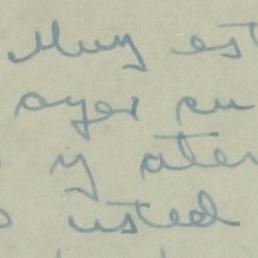 Muy est
ayer su
y aten
usted